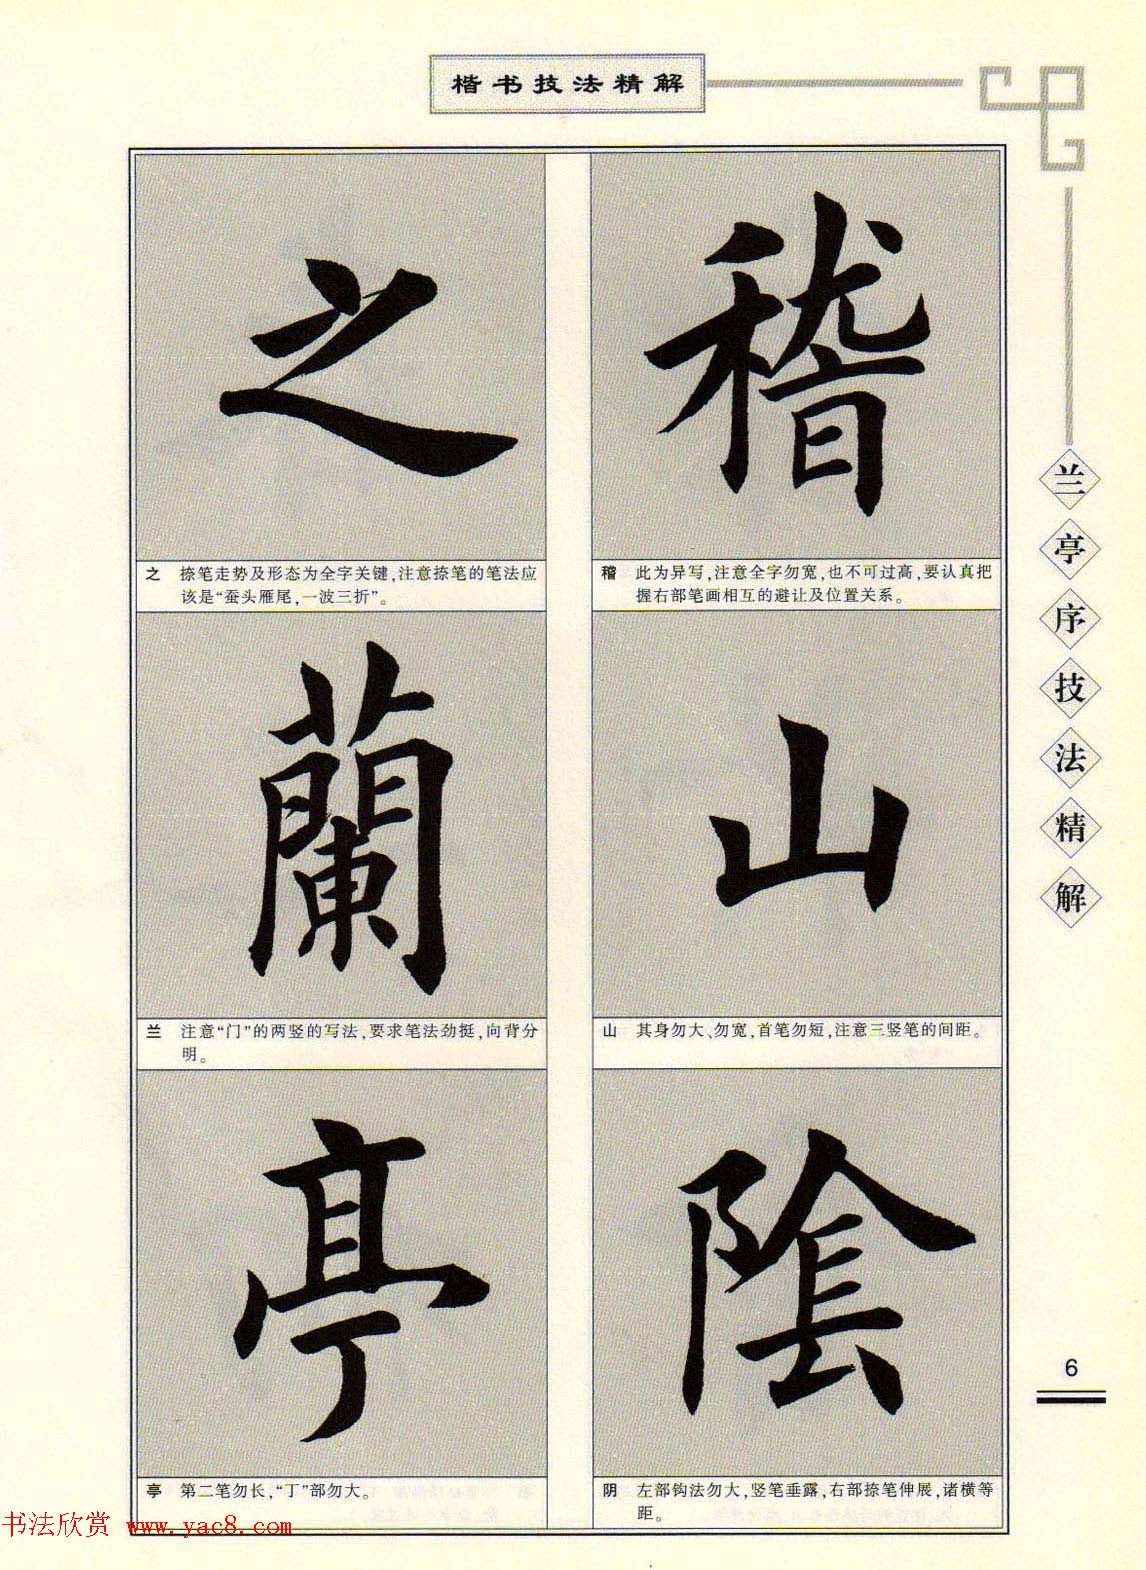 楷书技法精解
稽
稽 此为异写,注意全字勿宽,也不可过高,要认真把
握右部笔画相互的避让及位置关系。
山
山 其身勿大、勿宽,首笔勿短,注意三竖笔的间距。
陰
阴 左部钩法勿大,竖笔垂露,右部捺笔伸展,诸横等
距。
之
之 捺笔走势及形态为全字关键,注意捺笔的笔法应
该是“蚕头雁尾,一波三折”。
蘭
兰 注意“门”的两竖的写法,要求笔法劲挺,向背分
明。
亭
亭 第二笔勿长,“丁”部勿大。
兰亭序技法精解
6
书法欣赏 www.yac8.com